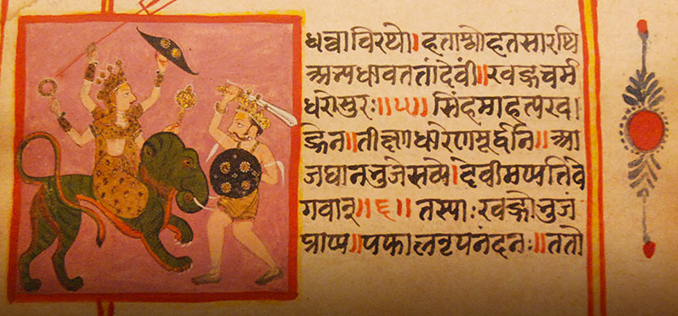 धन्वाविरथो॥हताश्वोहतसारथि
अभ्यधावततांदेवीं॥खड्गचर्म
धरोसुरः॥५॥सिंहमाहत्यख।
ड्गेन॥तीक्ष्णधारेणमूर्द्धनि॥आ
जघानभुजेसव्ये।देवीमप्यतिवे
गवान्॥६॥तस्याःखड्गोभुजं
प्राप्य॥पफालनृपनंदनः॥ततो